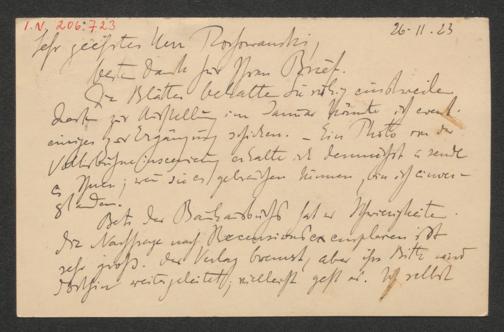 I.N. 206.723
26-11.23
Sehr geehrter Herr Rosowanski,
besten Dank für Ihren Brief.
Die Blätter behalten Sie ruhig einstweilen
dort; zur Ausstellung im Januar könnte ich event.
einiges zur Ergänzung schicken. – Ein Photo von der
erhalte ich demnächst u sende
es Ihnen; wenn sie es gebrauchen können, bin ich einver-
standen.
Betr. des Bauhausbuchs hat es Schwierigkeiten.
Die Nachfrage nach Recensionsexemplaren ist
sehr groß. Der Verlag bremst, aber Ihre Bitte wird
dorthin weitergeleitet; vielleicht geht es. Ich selbst